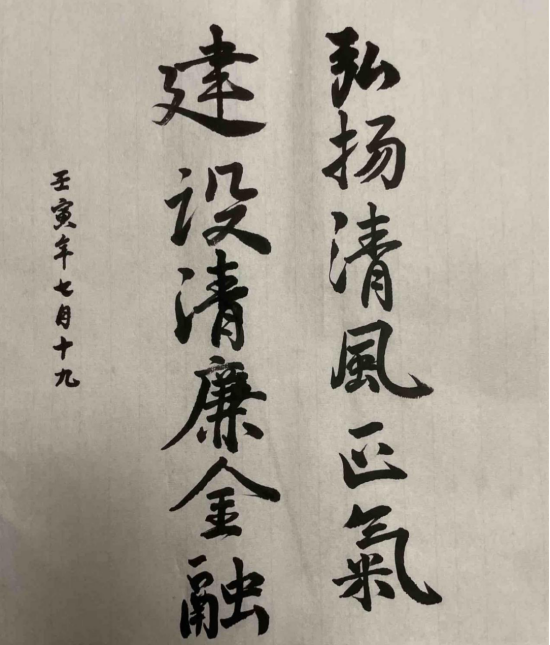 弘扬清風正氣
建设清廉金融
壬寅年七月十九